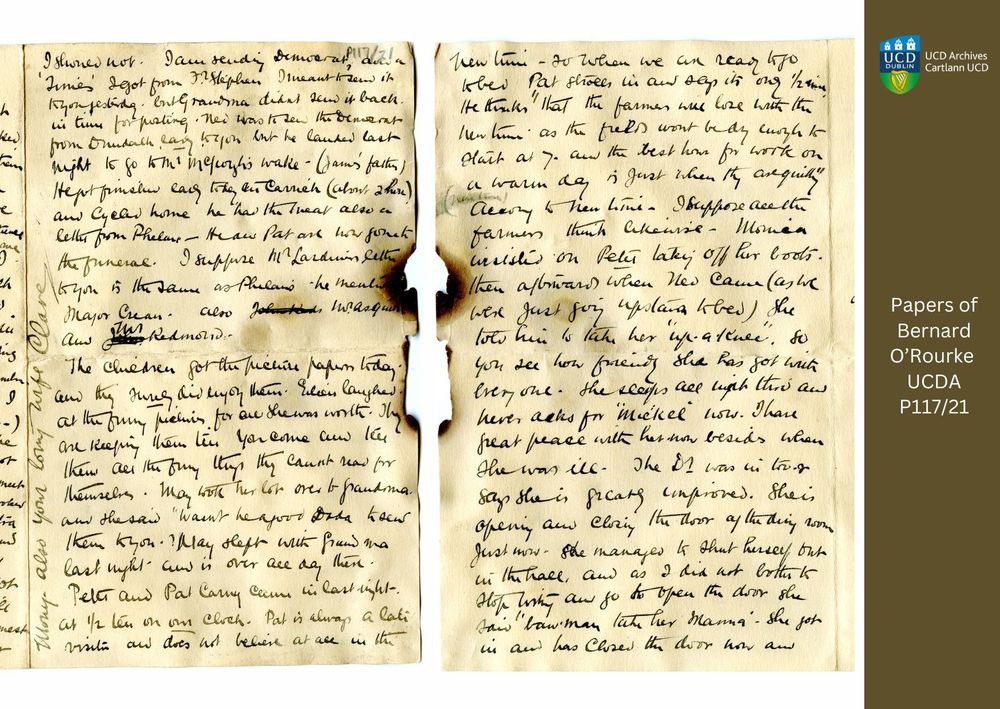 P117/21
I showed not. I am sending Democrat, and a
Times I got from Dr Stephen I meant to send it
to you yesterday. but Grandma didnt send it back.
in time for posting. Ned was to send the Democrat
from Dundalk early to you but he landed last
night to go to Mr McGeogh's wake - (Jame's father)
He got finished early today at Carrick (about 2 hours)
and Cycled home he had the treat also a
letter from Phelan - He and Pat are now gone to
the funeral. I suppose Mr Lardiner's letter
to you is the same as Phelans he mentions
Major Crean. also Mr Asquith
and Mr Redmond.
The children got the picture papers today.
and they surely did enjoy them. Eileen laughed
at the funny pictures for all she was worth. They
are keeping them till you come and tell
them all the funny things they cannot read for
themselves. May took her lot over to Grandma
and she said "wasn't he a good Dada to send
them to you.? May slept with Grandma
last night and is over all day there.
Peter and Pat Carny came in last night.
at 1/2 ten on our clock. Pat is always a late
visitor and does not believe at all in the
Mony. also your loving wife Clare
new time - so when we are ready to go
to bed Pat strolls in and says its only 1/2 nine
He thinks "that the farmers will lose with the
new time as the fields wont be dry enough to
start at 7. and the best hour for work on
a warm day is just when they are quitting"
(new time)
Accory to new time - I suppose all the
farmers think likewise - Monica
insisted on Peter taking off her boots.
then afterwards when Ned came (as we
were just going upstairs to bed) she
told him to take her "up-a-knee". So
you see how friendly she has got with
every one. She sleeps all night thro' and
never asks for "Mickel" now. I have
great peace with her now besides when
she was ill. The Dr was in to-day
says she is greatly improved. She is
opening and closing the door of the dining room
just now - she managed to shut herself out
in the hall, and as I did not bother to
stop writing and go to open the door she
said "baw-man take her Mama" - she got
in and has closed the door now and
UCD
DUBLIN
UCD Archives
Cartlann UCD
Papers of
Bernard
O'Rourke
UCDA
P117/21